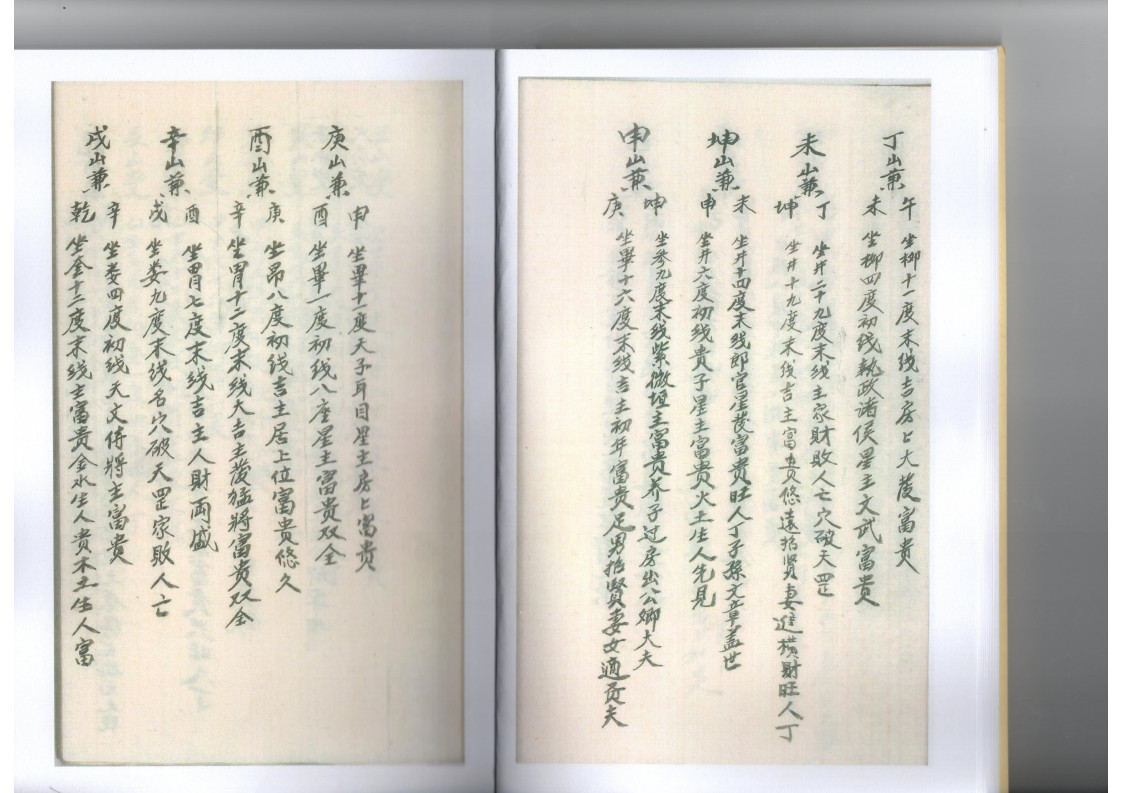 丁山兼
午 坐柳十一度末线吉房上大发富贵
未 坐柳四度初线执政诸侯星主文武富贵
未山兼
丁 坐井二十九度末线主家财败人亡穴破天罡
坤 坐井十九度末线吉主富贵悠远招贤妻进横财旺人丁
坤山兼
未 坐井十四度末线郎官星发富贵旺人丁子孙文章盖世
申 坐井六度初线贵子星主富贵火土生人先见
申山兼
坤 坐参九度末线紫微垣主富贵养子过房出公卿大夫
庚 坐毕十六度末线吉主初年富贵足男招贤妻女适贵夫
庚山兼
申 坐毕十度天子耳目星主房上富贵
酉 坐毕一度初线八座星主富贵双全
酉山兼
庚 坐昴八度初线吉主居上位富贵悠久
辛 坐胃十二度末线大吉主发猛将富贵双全
辛山兼
酉 坐胃七度末线吉主人财両盛
戌 坐娄九度末线名穴破天罡家败人亡
戌山兼
辛 坐娄四度初线天文侍将主富贵
乾 坐奎十二度末线主富贵金水生人贵木土生人富